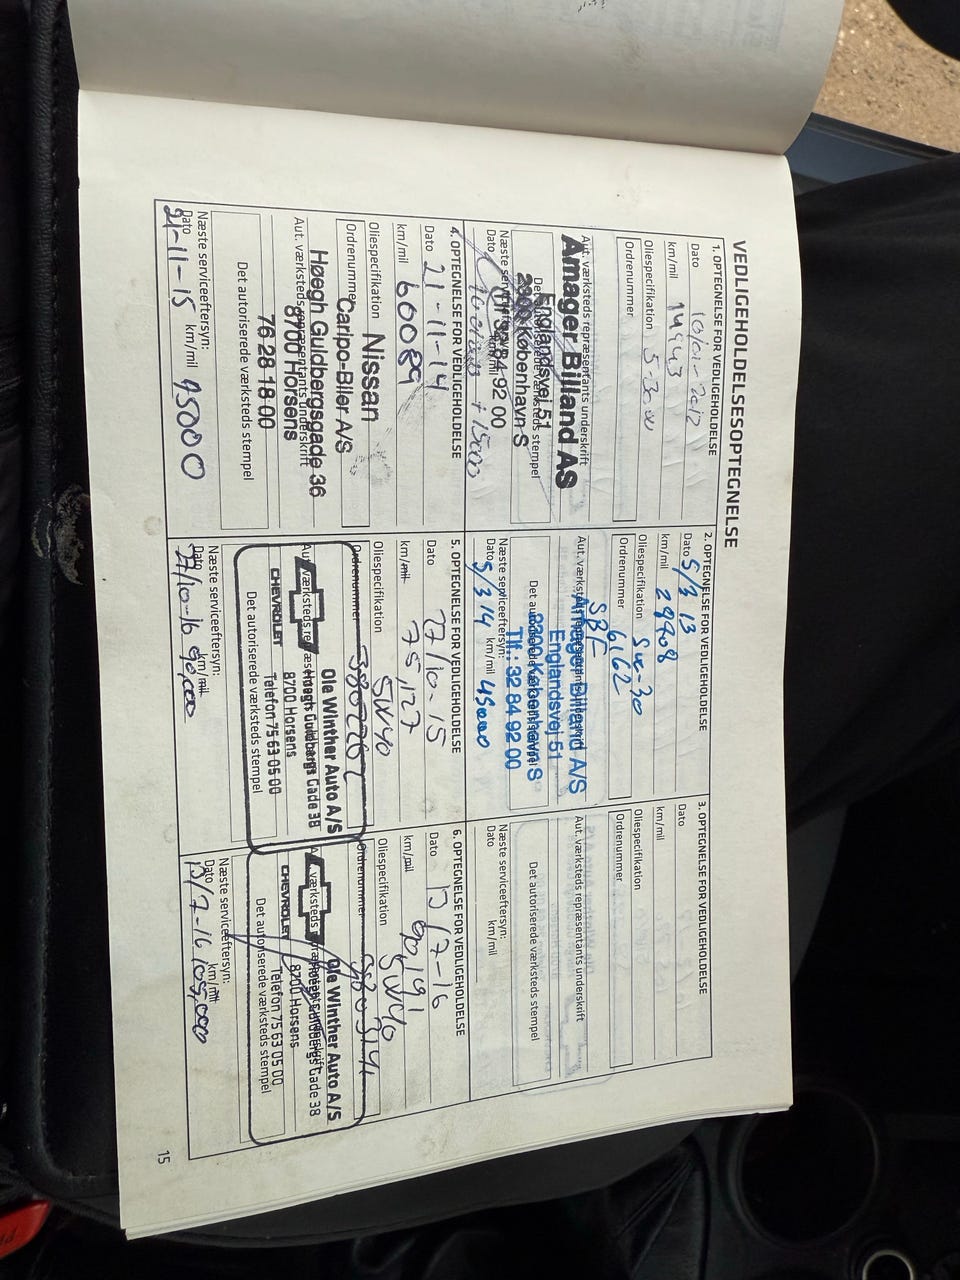 VEDLIGEHOLDELSESOPTEGNELSE
1. OPTEGNELSE FOR VEDLIGEHOLDELSE
Dato 10/01-2012
km/mil 14943
Oliespecifikation 5-30W
Ordrenummer
Aut. værksteds repræsentants underskrift
Amager Billand AS
Englandsvej 51
2300 København S
32 84 92 00
Det autoriserede værksteds stempel
Næste serviceeftersyn:
Dato km/mil + 15000
2. OPTEGNELSE FOR VEDLIGEHOLDELSE
Dato 5/3 13
km/mil 29908
Oliespecifikation 5w-30
Ordrenummer 6162
SBF
Aut. værksteds repræsentants underskrift
Amager Billand A/S
Englandsvej 51
2300 København S
Tlf.: 32 84 92 00
Det autoriserede værksteds stempel
Næste serviceeftersyn:
Dato 5/3 14 km/mil 45000
3. OPTEGNELSE FOR VEDLIGEHOLDELSE
Dato
km/mil
Oliespecifikation
Ordrenummer
Aut. værksteds repræsentants underskrift
Det autoriserede værksteds stempel
Næste serviceeftersyn:
Dato km/mil
4. OPTEGNELSE FOR VEDLIGEHOLDELSE
Dato 21-11-14
km/mil 60089
Oliespecifikation Nissan
Ordrenummer Caripo-Biler A/S
Høegh Guldbergsgade 36
Aut. værksteds repræsentants underskrift
8700 Horsens
76 28 18 00
Det autoriserede værksteds stempel
Næste serviceeftersyn:
Dato 21-11-15 km/mil 95000
5. OPTEGNELSE FOR VEDLIGEHOLDELSE
Dato 27/10-15
km/mil 75,127
Oliespecifikation 5W40
Ordrenummer 3802262
Ole Winther Auto A/S
Aut. værksteds repræsentants underskrift
Høegh Guldbergs Gade 38
8700 Horsens
CHEVROLET Telefon 75 63 05 00
Det autoriserede værksteds stempel
Næste serviceeftersyn:
Dato 27/10-16 km/mil 90,000
6. OPTEGNELSE FOR VEDLIGEHOLDELSE
Dato 13/7-16
km/mil 90,191
Oliespecifikation 5W40
Ordrenummer
Ole Winther Auto A/S
Aut. værksteds repræsentants underskrift
Høegh Guldbergs Gade 38
8700 Horsens
CHEVROLET Telefon 75 63 05 00
Det autoriserede værksteds stempel
Næste serviceeftersyn:
Dato 13/7-16 km/mil 105,000
15